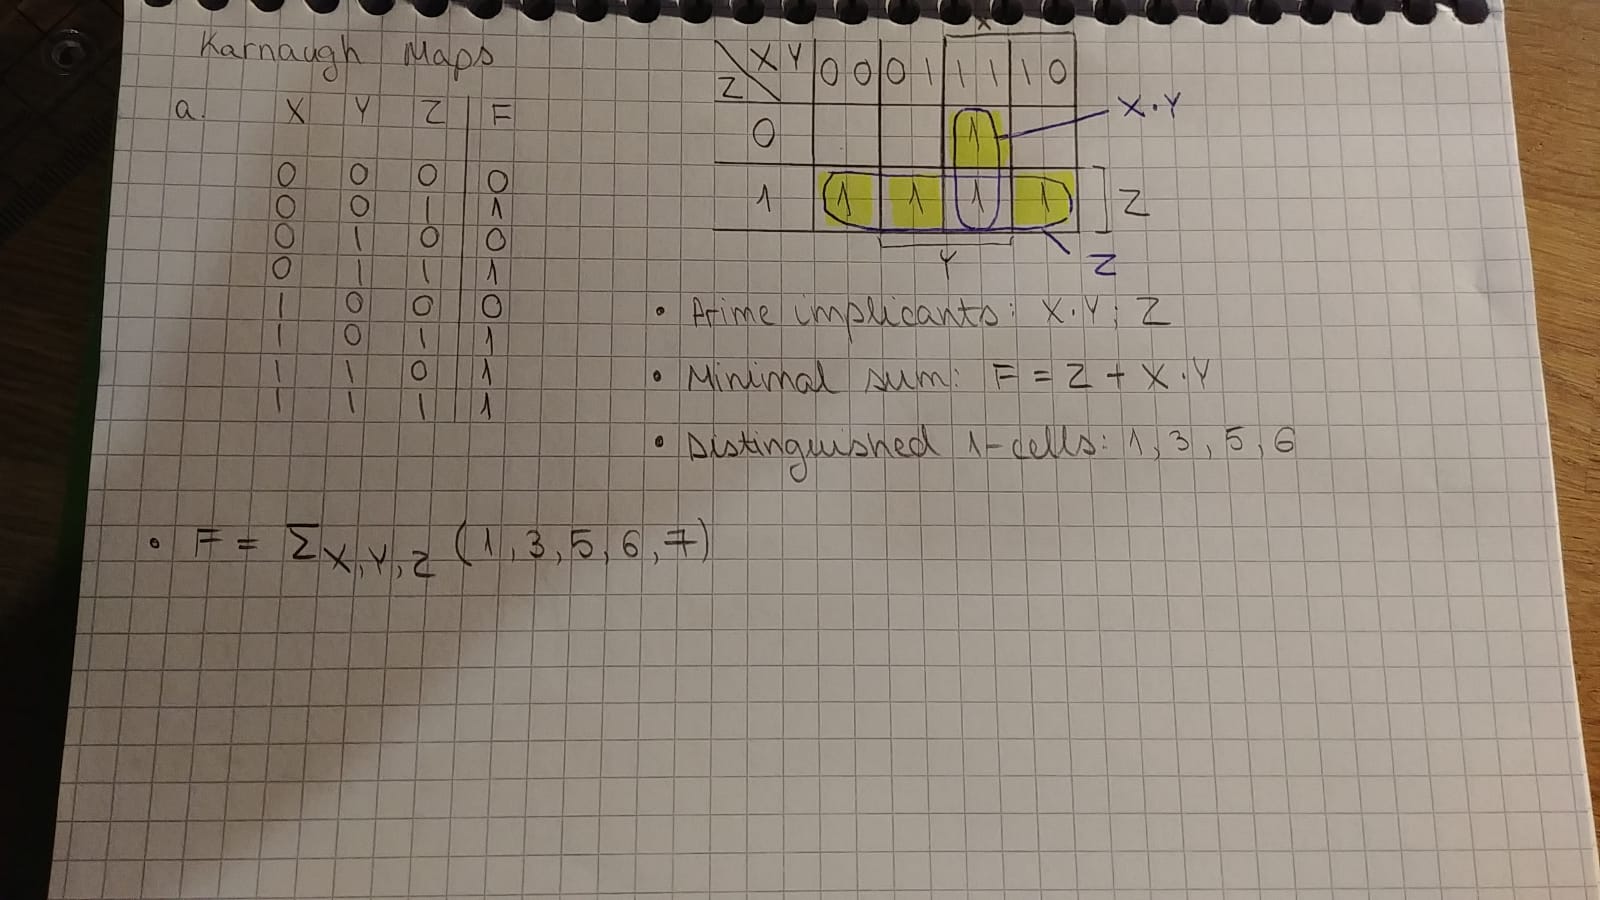 Karnaugh Maps
a. X Y Z F
0 0 0 0
0 0 1 1
0 1 0 0
0 1 1 1
1 0 0 0
1 0 1 1
1 1 0 1
1 1 1 1
X
X Y 00 01 11 10
Z
0 1
X·Y
1 1 1 1 1
Z
Y
Z
• Prime implicants: X·Y; Z
• Minimal sum: F = Z + X·Y
• Distinguished 1-cells: 1, 3, 5, 6
• F = Σ X,Y,Z (1, 3, 5, 6, 7)